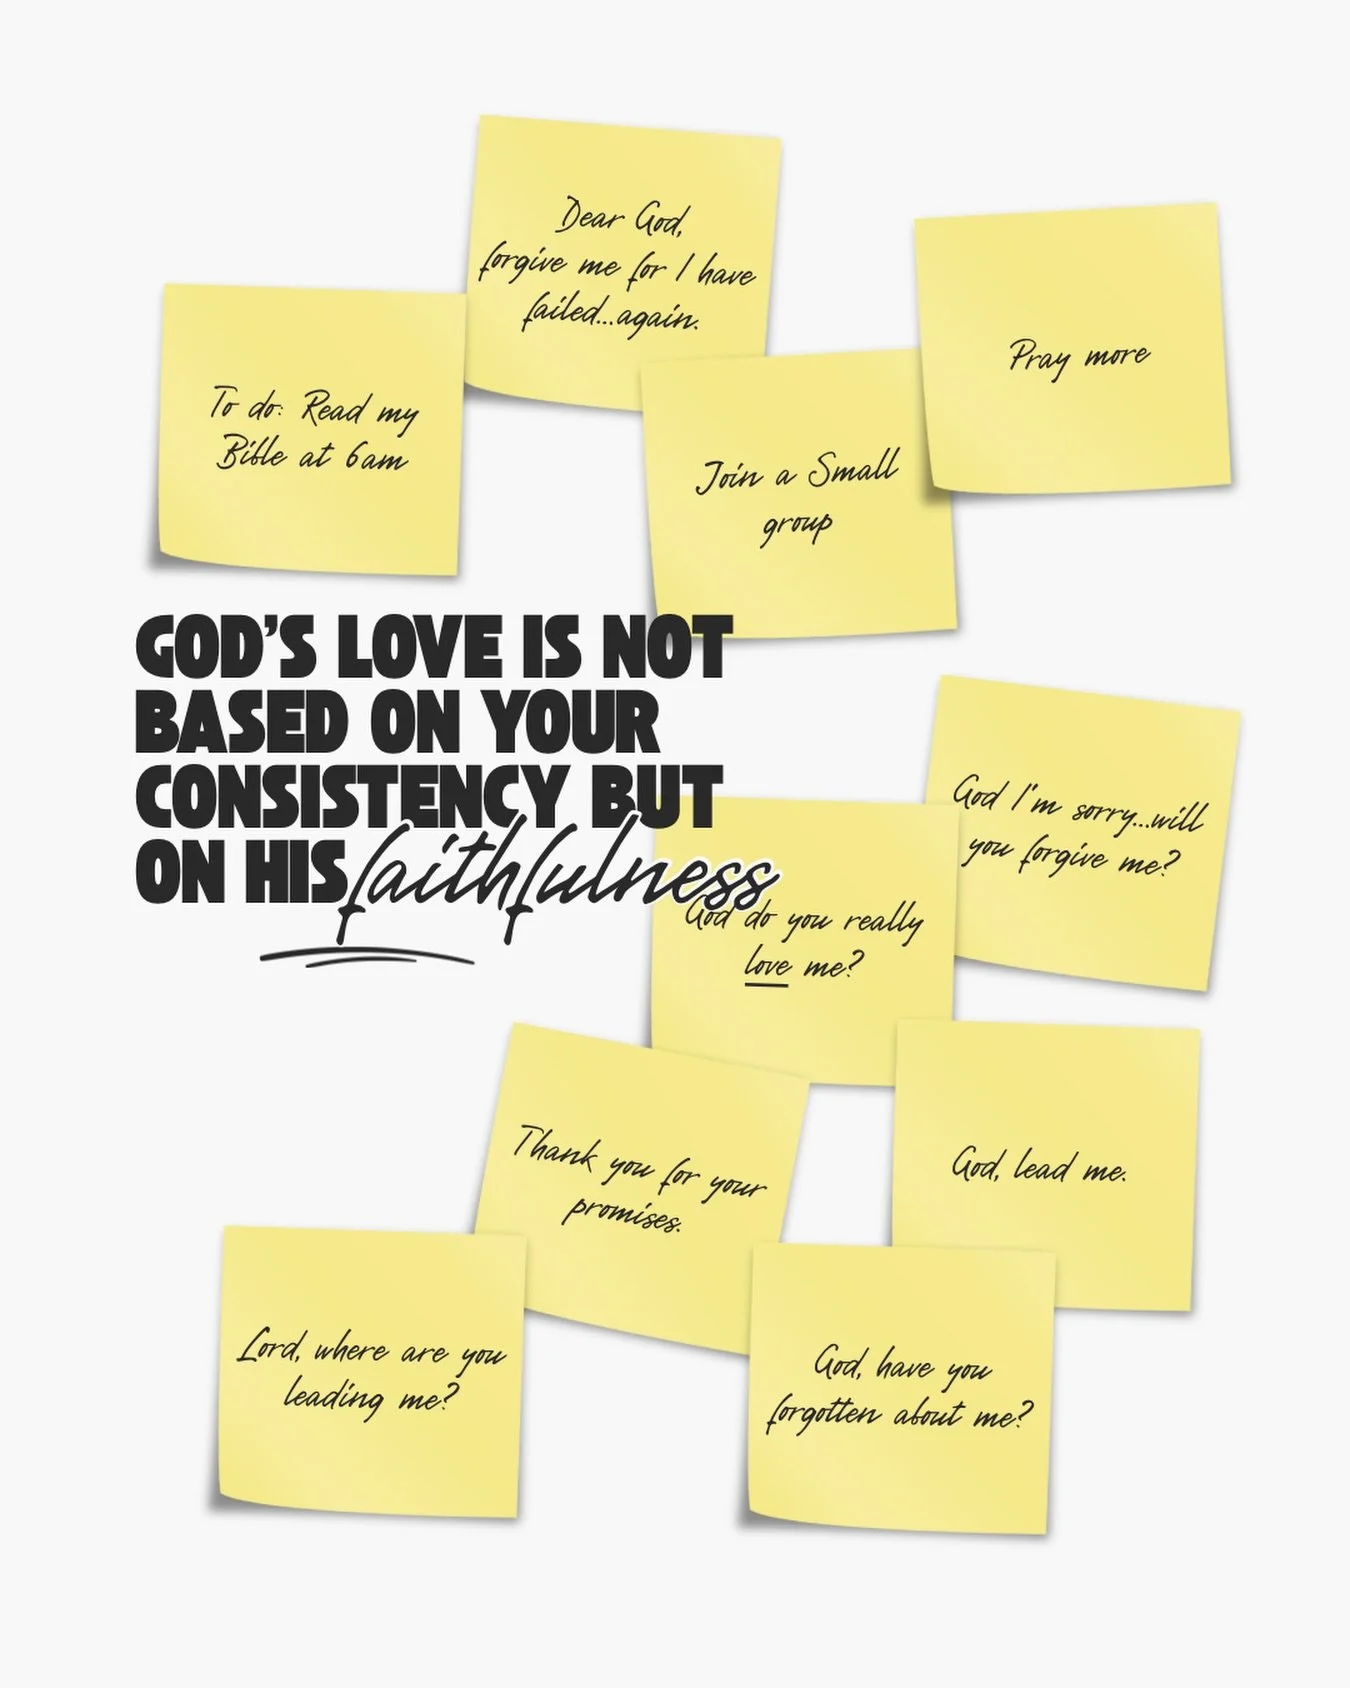 Dear God,
forgive me for I have
failed...again.
Pray more
To do: Read my
Bible at 6am
Join a Small
group
GOD'S LOVE IS NOT
BASED ON YOUR
CONSISTENCY BUT
ON HIS faithfulness
God I'm sorry...will
you forgive me?
God do you really
love me?
Thank you for your
promises.
God, lead me.
Lord, where are you
leading me?
God, have you
forgotten about me?